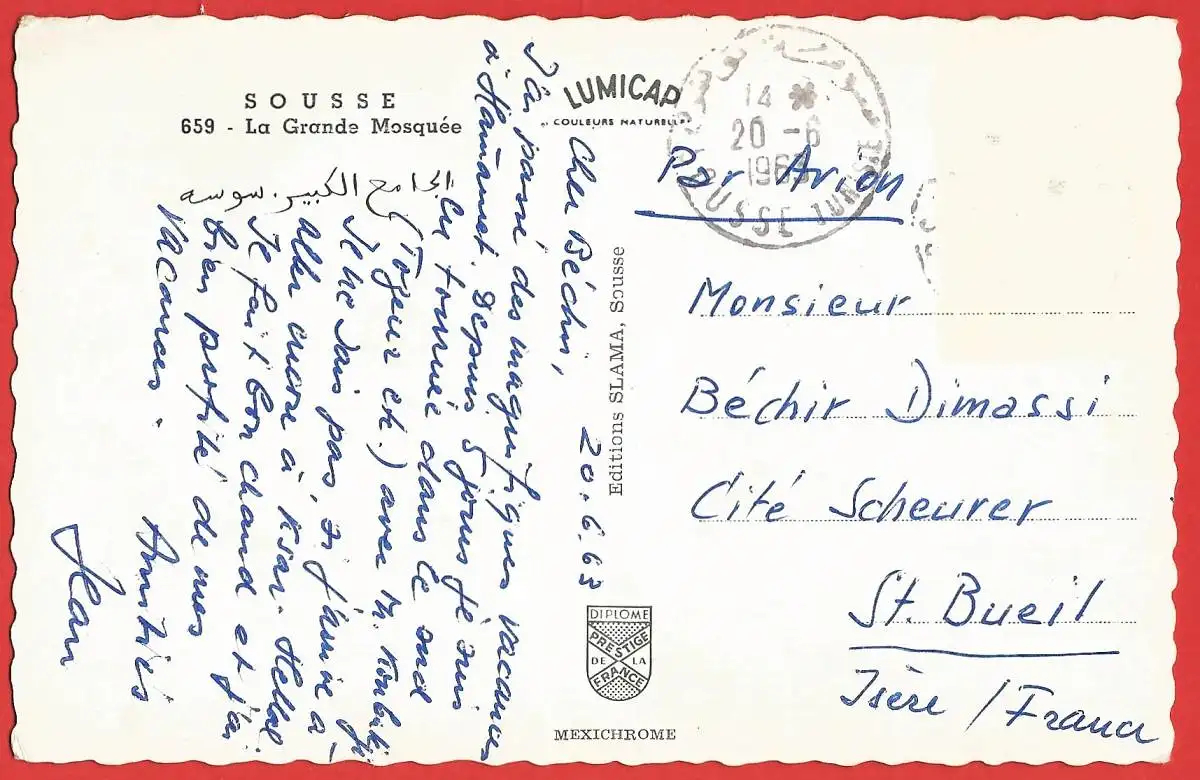 SOUSSE
659 - La Grande Mosquée
الجامع الكبير. سوسه
LUMICAP
COULEURS NATURELLES
Cher Béchir, 20.6.63
J'ai passé des magnifiques vacances
à Hamamet. Depuis 5 jours je suis
en tournée dans le sud
(Tozeur etc.) avec M.
Je ne sais pas, si j'arrive à
aller encore à Ksar-Hellal.
Je fait bon chaud et j'ai
bien profité de mes
vacances.
Amitiés
Jean
Editions SLAMA, Sousse
DIPLOME
PRESTIGE
DE LA
FRANCE
MEXICHROME
سوسة تونس
14 *
20 -6
1963
SOUSSE TUNISIE
Par Avion
Monsieur
Béchir Dimassi
Cité Scheurer
St. Bueil
Isère / France